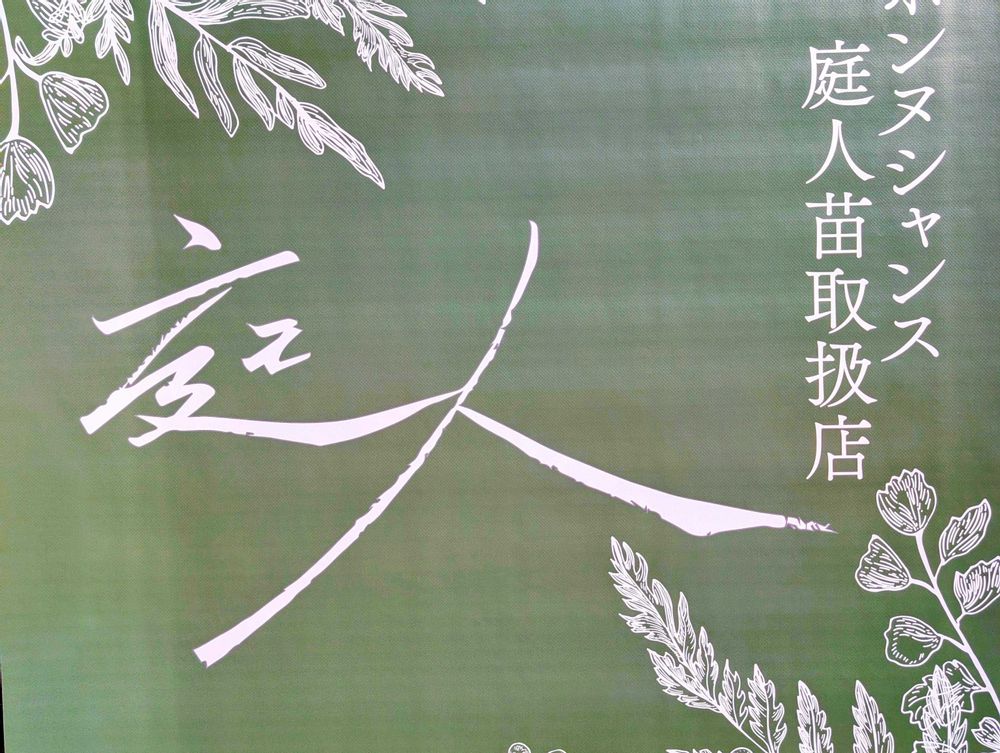 ボンヌシャンス
庭人苗取扱店
庭人